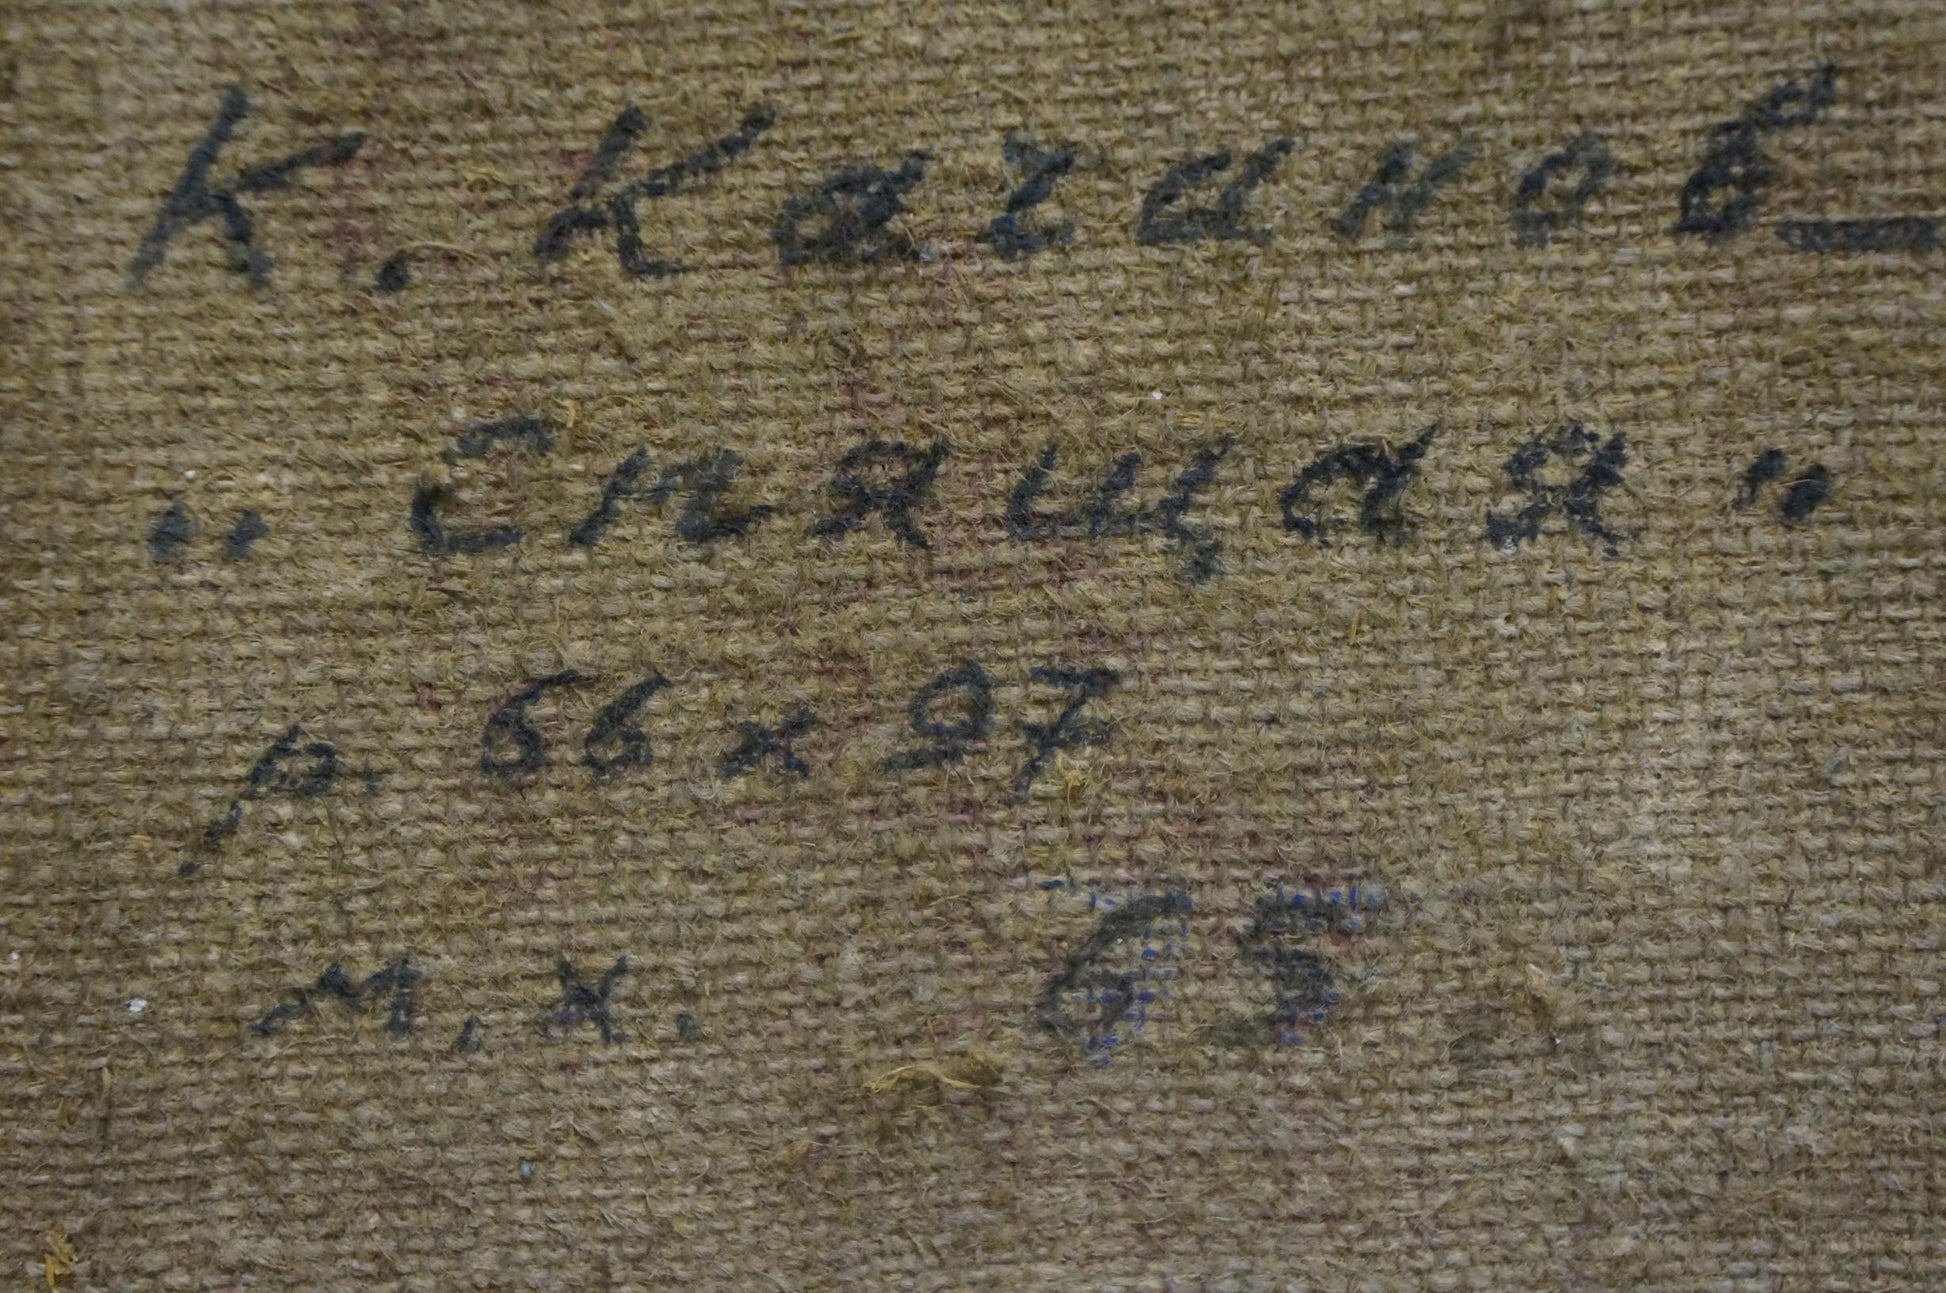 К. Каганов
„ Спящая "
р. 66 x 97
м. х.